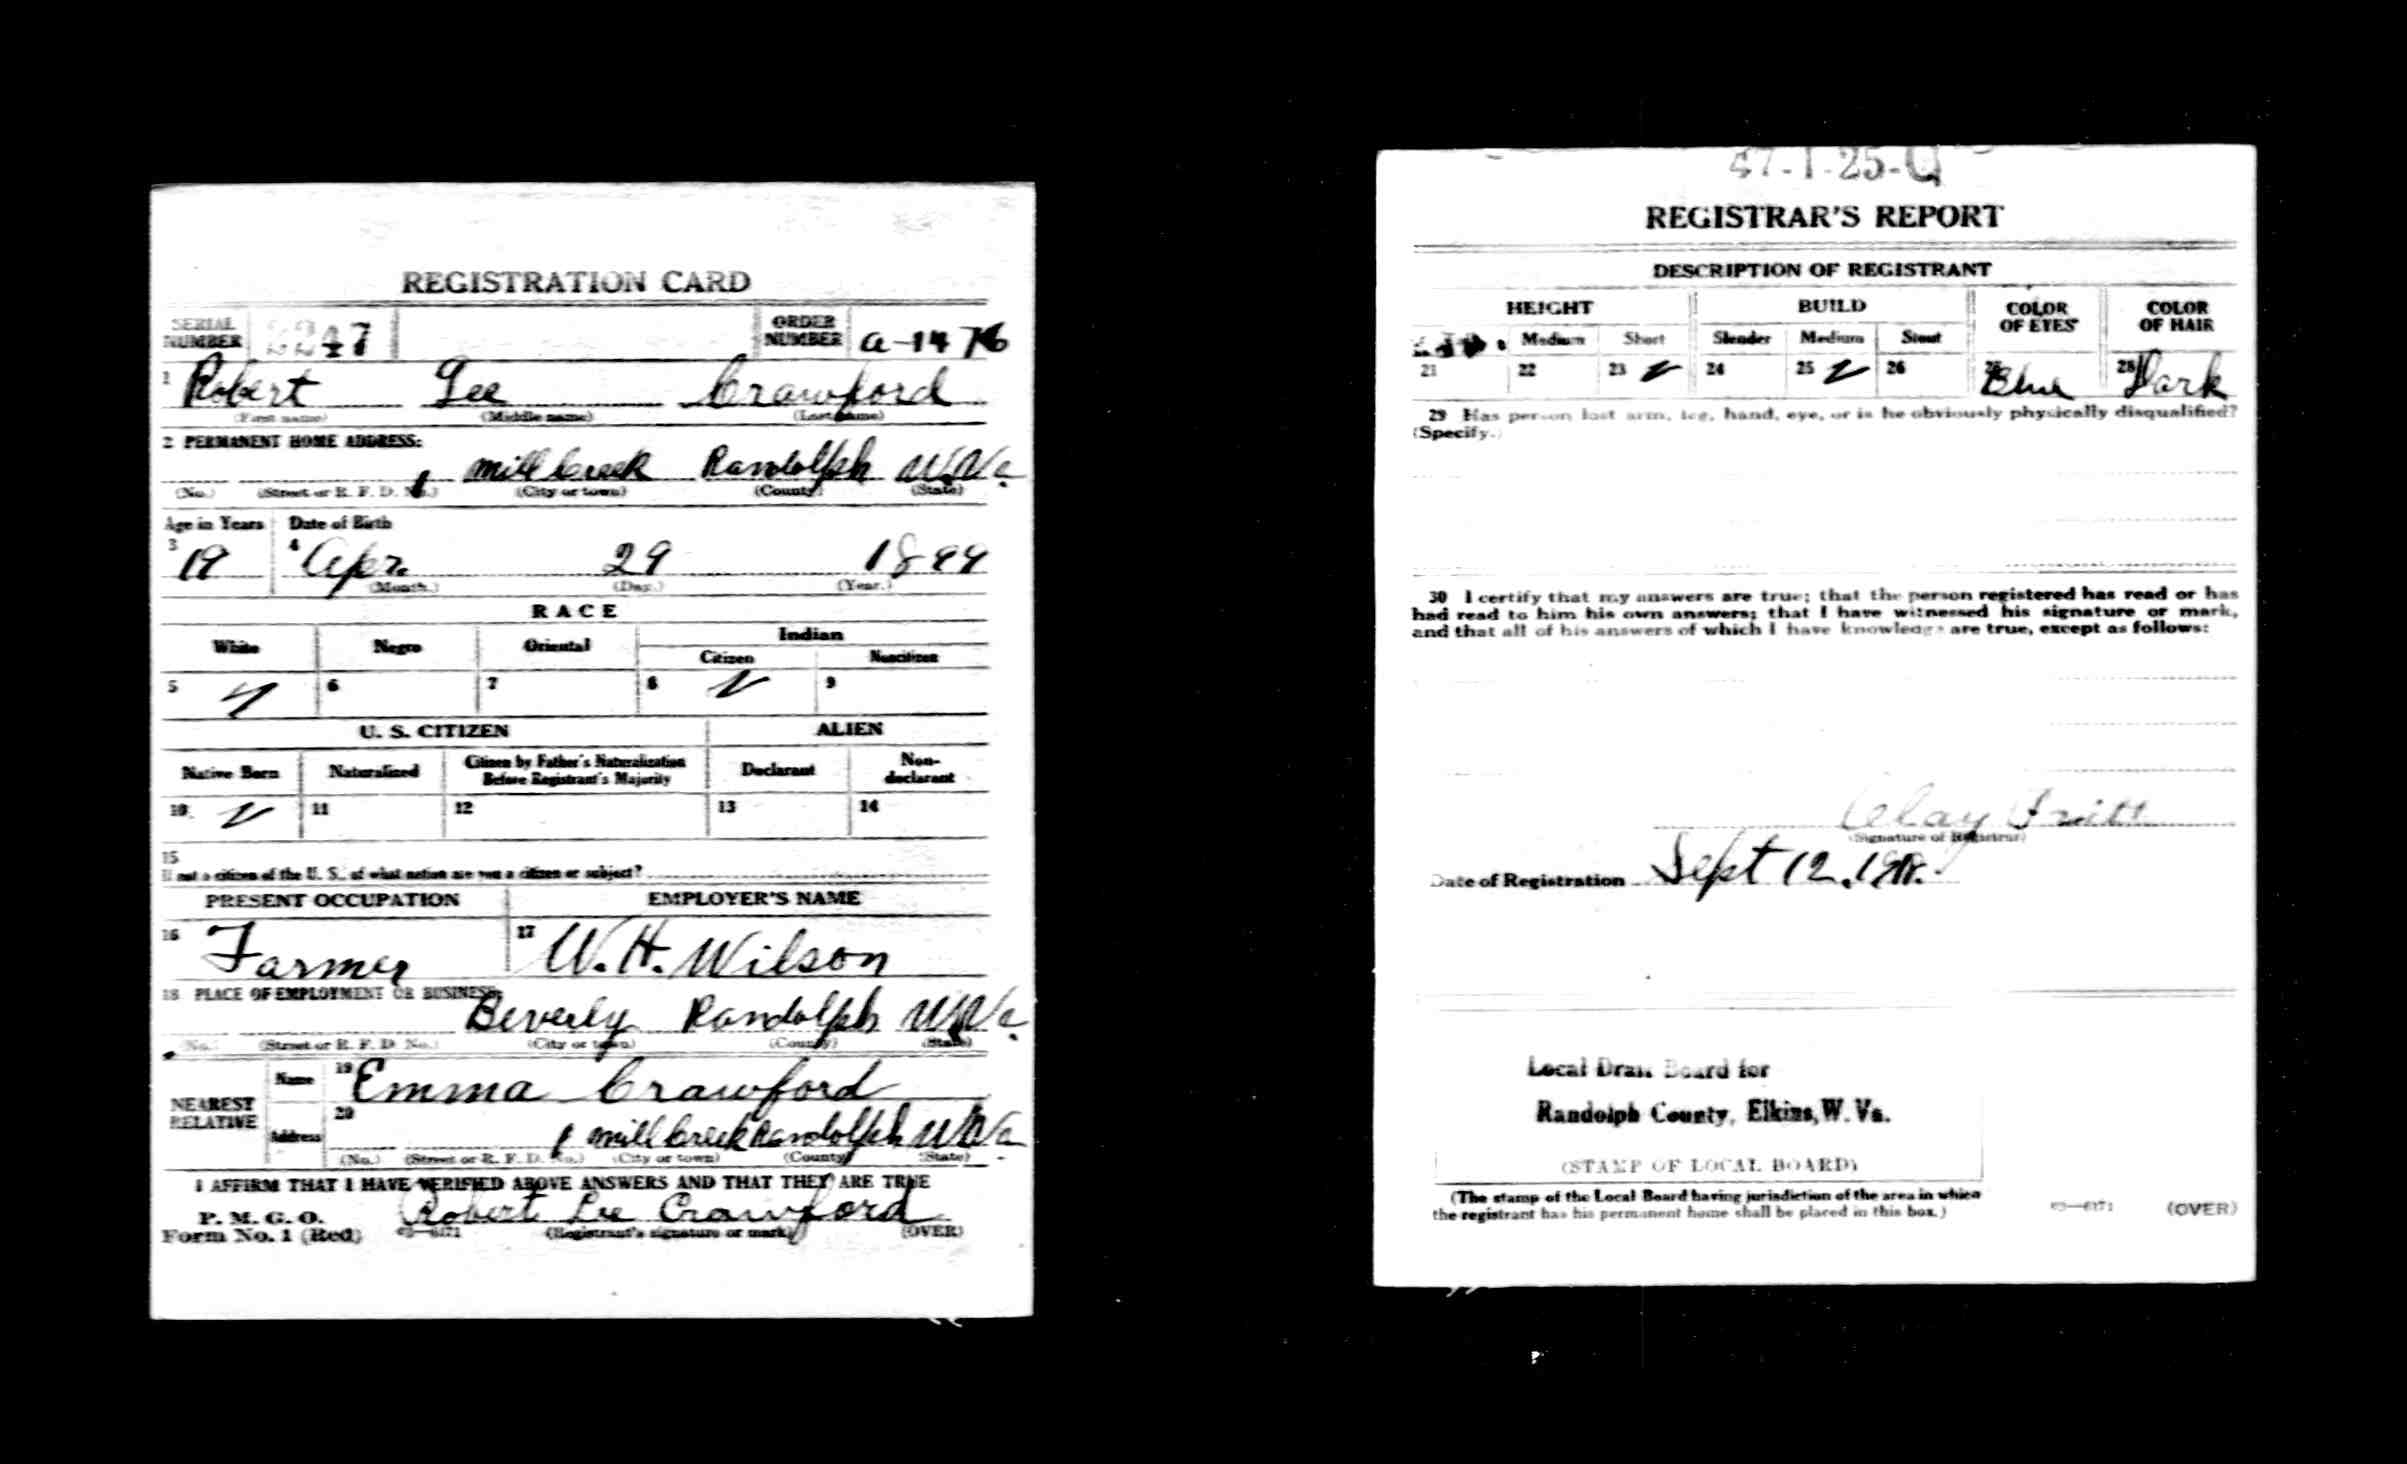 REGISTRATION CARD
SERIAL NUMBER ORDER NUMBER a-1476
1 Robert Lee Crawford
(First name) (Middle name) (Last name)
2 PERMANENT HOME ADDRESS:
Mill Creek Randolph W.Va.
(No.) (Street or R. F. D. No.) (City or town) (County) (State)
Age in Years Date of Birth
3 19 4 Apr. 29 1899
(Month.) (Day.) (Year.)
RACE
White Negro Oriental Indian
Citizen Noncitizen
5 6 7 8 9
U. S. CITIZEN ALIEN
Native Born Naturalized Citizen by Father's Naturalization Before Registrant's Majority Declarant Non-declarant
10 11 12 13 14
15
If not a citizen of the U. S., of what nation are you a citizen or subject?
PRESENT OCCUPATION EMPLOYER'S NAME
16 Farmer 17 W. H. Wilson
18 PLACE OF EMPLOYMENT OR BUSINESS:
Beverly Randolph W.Va.
(No.) (Street or R. F. D. No.) (City or town) (County) (State)
NEAREST RELATIVE Name 19 Emma Crawford
Address 20 Mill Creek Randolph W.Va
(No.) (Street or R. F. D. No.) (City or town) (County) (State)
I AFFIRM THAT I HAVE VERIFIED ABOVE ANSWERS AND THAT THEY ARE TRUE
P. M. G. O.
Form No. 1 (Red) Robert Lee Crawford
(Registrant's signature or mark) (OVER)
47-1-25-
REGISTRAR'S REPORT
DESCRIPTION OF REGISTRANT
HEIGHT BUILD COLOR OF EYES COLOR OF HAIR
Medium Short Slender Medium Stout
21 22 23 24 25 26 Blue 28 Dark
29 Has person lost arm, leg, hand, eye, or is he obviously physically disqualified?
(Specify.)
30 I certify that my answers are true; that the person registered has read or has
had read to him his own answers; that I have witnessed his signature or mark,
and that all of his answers of which I have knowledge are true, except as follows:
Clay
(Signature of Registrar)
Date of Registration Sept 12, 1918.
Local Draft Board for
Randolph County, Elkins, W. Va.
(STAMP OF LOCAL BOARD)
(The stamp of the Local Board having jurisdiction of the area in which
the registrant has his permanent home shall be placed in this box.)
(OVER)